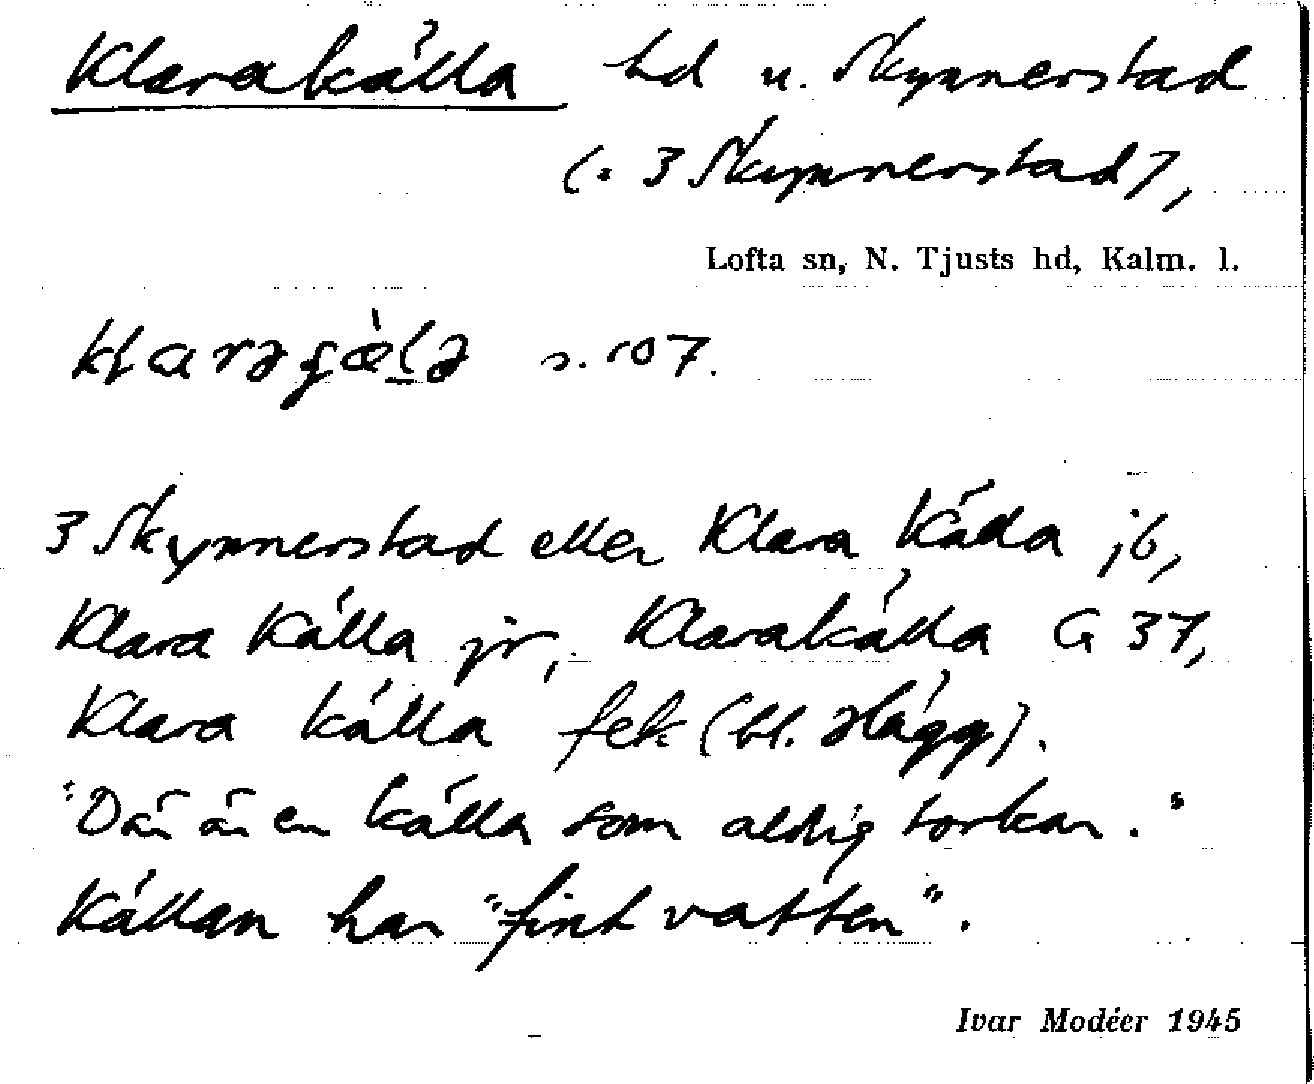 Klarakälla hd u. Skynnerstad
(. 3 Skynnerstad),
Lofta sn, N. Tjusts hd, Kalm. l.
s. 107.
3 Skynnerstad eller Klara Källa jb,
Klara Källa jr, Klarakälla G 37,
Klara källa fek (bl. Hägg).
"Där är en källa som aldrig torkar."
Källan har "fint vatten".
Ivar Modéer 1945